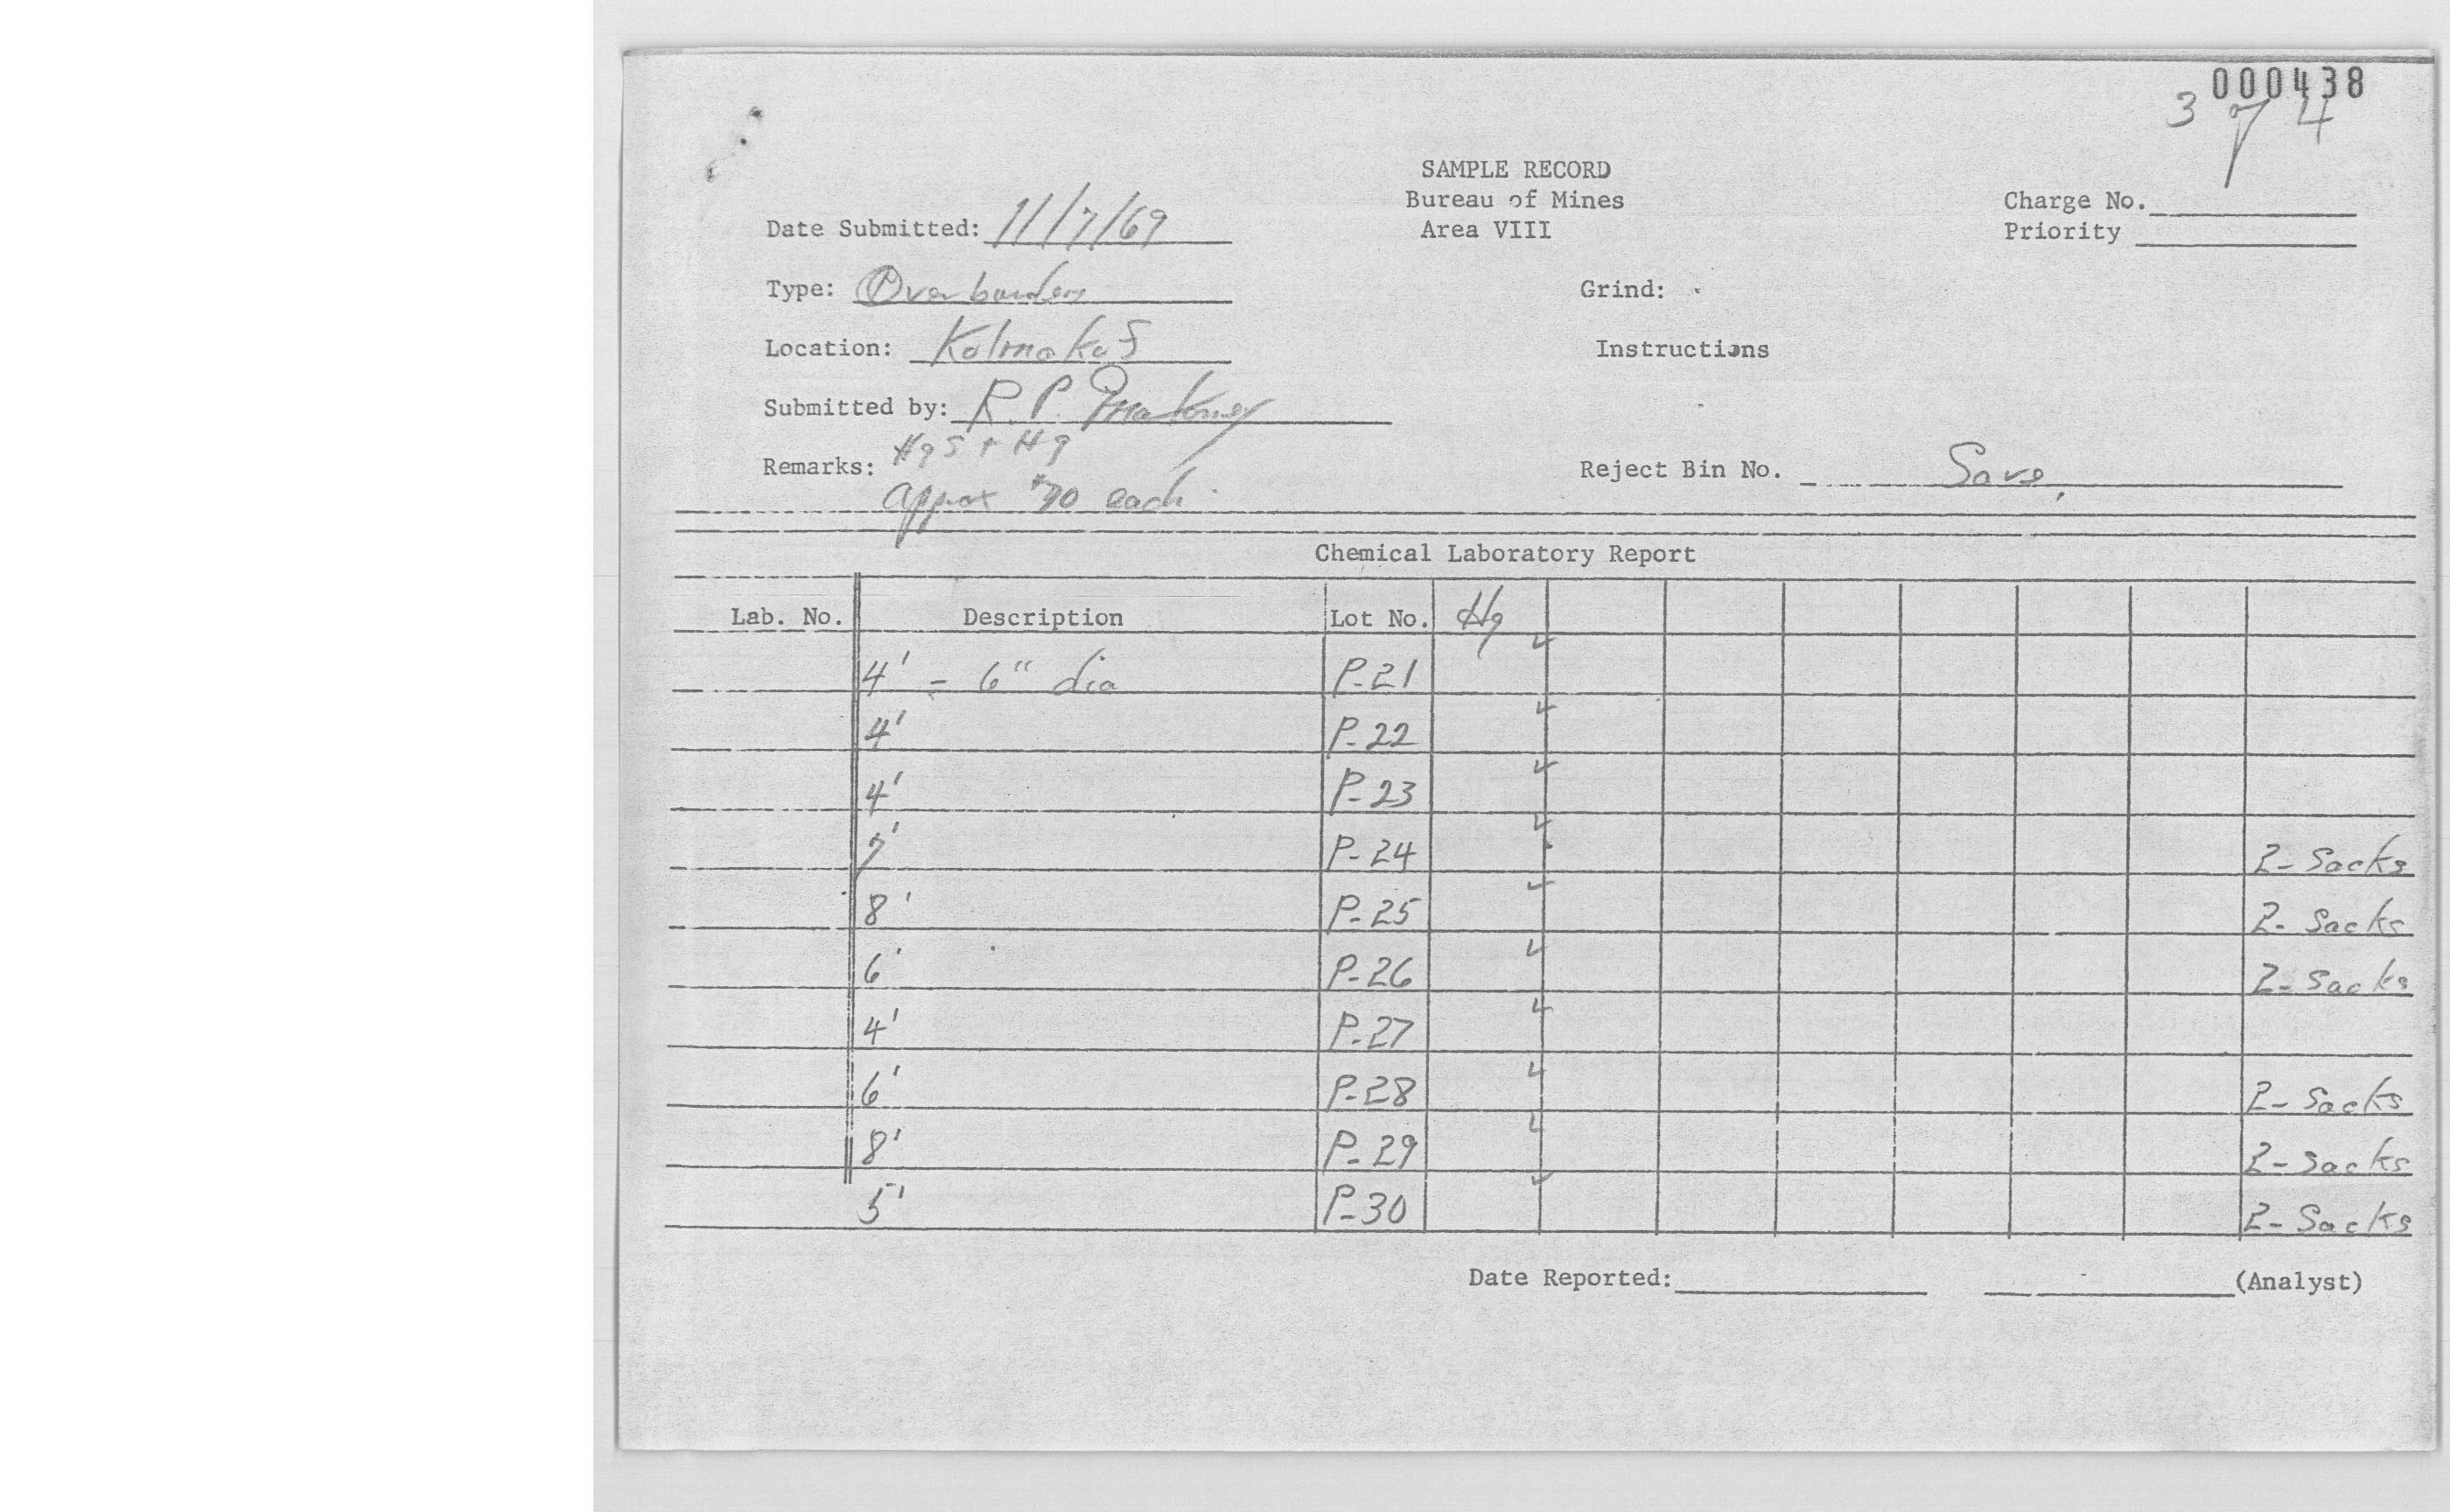 000438
3 of 4
SAMPLE RECORD
Bureau of Mines
Area VIII
Charge No.
Priority
Date Submitted: 11/7/69
Type: Overburden
Grind:
Location: Kolmakof
Instructions
Submitted by: R. P. Maloney
Remarks: HgS + Hg
approx each
Reject Bin No. Save
Chemical Laboratory Report
Lab. No. Description Lot No. Hg
4' - 6" dia P-21 ✓
4' P-22 ✓
4' P-23 ✓
7' P-24 ✓ 2- Sacks
8' P-25 ✓ 2- Sacks
6' P-26 ✓ 2- Sacks
4' P-27 ✓
6' P-28 ✓ 2- Sacks
8' P-29 ✓ 2- Sacks
5' P-30 ✓ 2- Sacks
Date Reported: (Analyst)